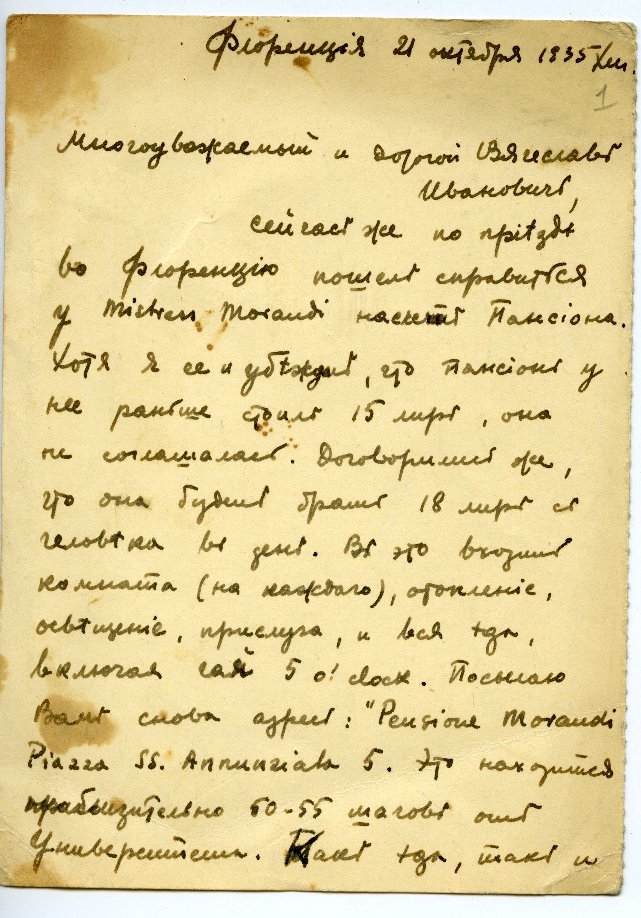 Флоренція 21 октября 1935 XIII.
1
Многоуважаемый и дорогой Вячеславъ
Ивановичъ,
сейчасъ же по пріѣздѣ
во Флоренцію пошелъ справиться
у Mistress Morandi насчетъ Пансіона.
Хотя я ее и убѣждалъ, что пансіонъ у
нее раньше стоилъ 15 лиръ, она
не соглашалась. Договорились же,
что она будетъ брать 18 лиръ съ
человѣка въ день. Въ это входитъ
комната (на каждаго), отопленіе,
освѣщеніе, прислуга, и вся ѣда,
включая чай 5 o'clock. Посылаю
Вамъ снова адресъ: "Pensione Morandi
Piazza SS. Annunziata 5. Это находится
приблизительно 50-55 шаговъ отъ
Университета. Какъ ѣда, такъ и